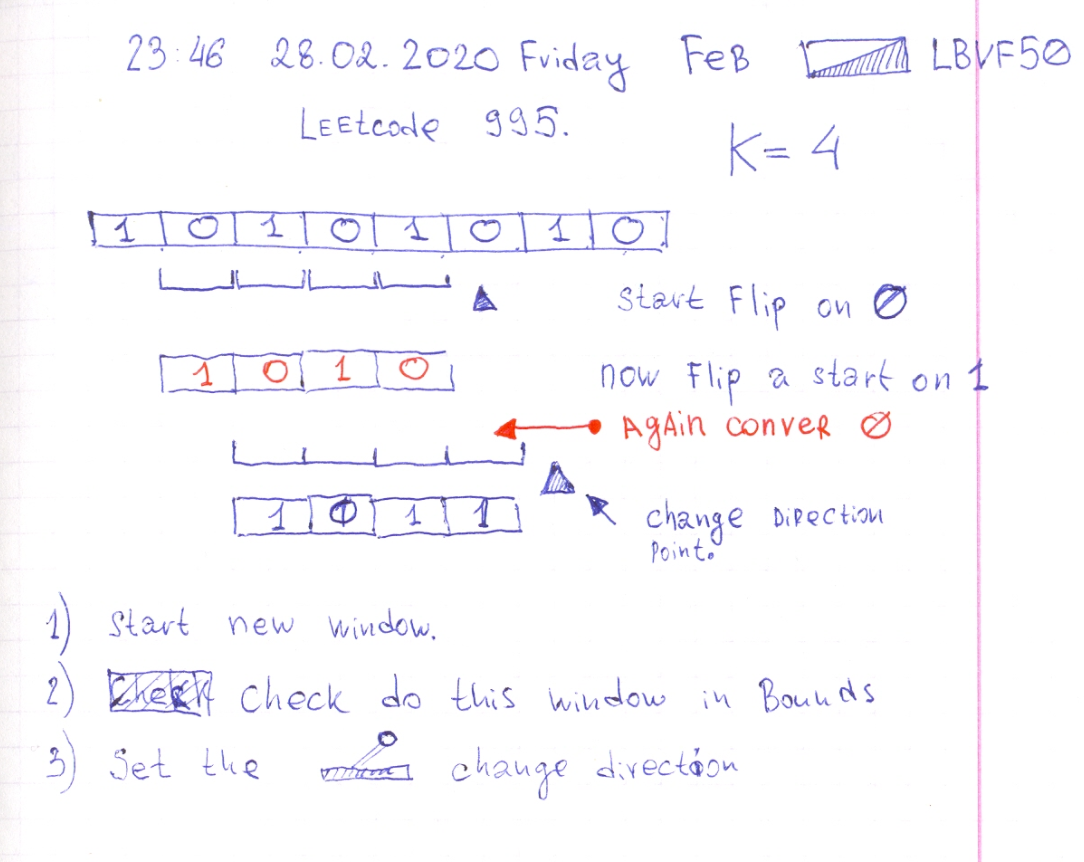 23:46 28.02.2020 Friday FeB LBVF50
LEEtcode 995.
K= 4
1 0 1 0 1 0 1 0
Start Flip on 0
1 0 1 0
now Flip a start on 1
AgAin conveR 0
1 0 1 1
change Direction
Point.
1) Start new window.
2) Check check do this window in Bounds
3) Set the change direction